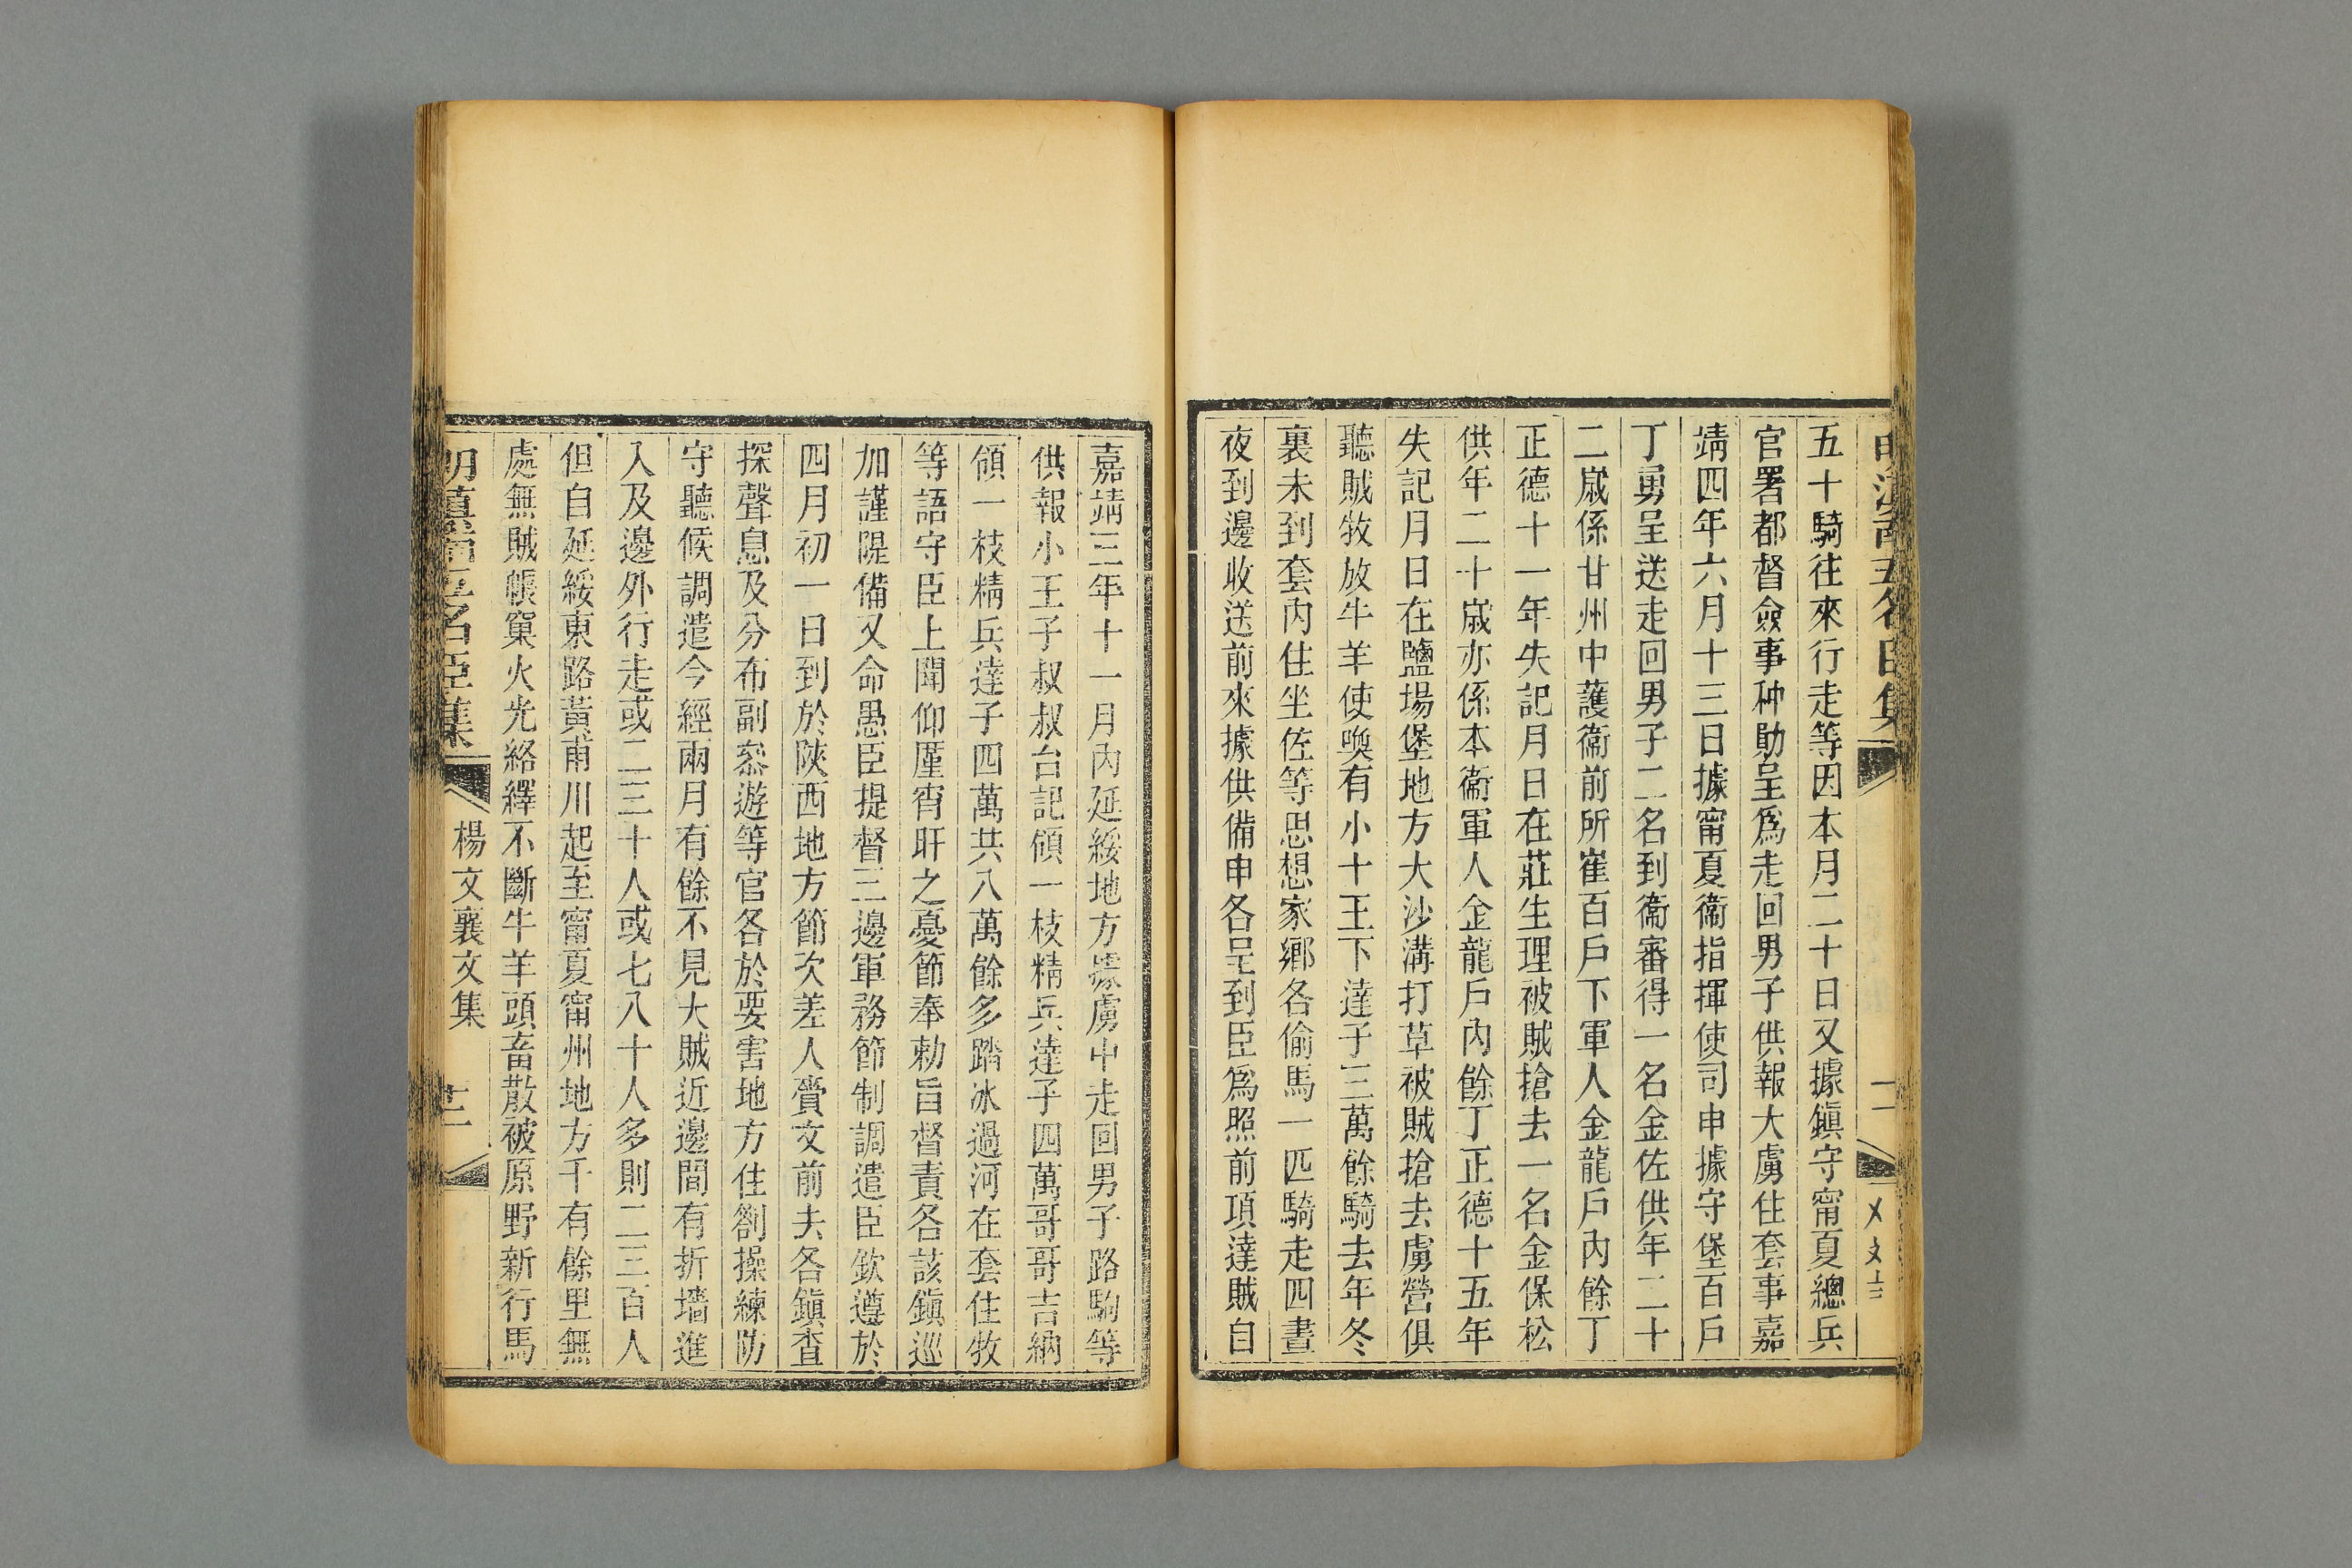 五十騎往來行走等因本月二十日又據鎭守甯夏總兵
官署都督僉事种勛呈爲走回男子供報大虜住套事嘉
靖四年六月十三日據甯夏衞指揮使司申據守堡百戶
丁勇呈送走回男子二名到衞審得一名金佐供年二十
二歲係甘州中護衞前所崔百戶下軍人金龍戶內餘丁
正德十一年失記月日在莊生理被賊搶去一名金保松
供年二十歲亦係本衞軍人金龍戶內餘丁正德十五年
失記月日在鹽場堡地方大沙溝打草被賊搶去虜營俱
聽賊牧放牛羊使喚有小十王下達子三萬餘騎去年冬
裏未到套內住坐佐等思想家鄉各偷馬一匹騎走四晝
夜到邊收送前來據供備申各呈到臣爲照前項達賊自
嘉靖三年十一月內延綏地方據虜中走回男子路駒等
供報小王子叔叔台記領一枝精兵達子四萬哥哥吉納
領一枝精兵達子四萬共八萬餘多踏冰過河在套住牧
等語守臣上聞仰厪宵旰之憂節奉勅旨督責各該鎭巡
加謹隄備又命愚臣提督三邊軍務節制調遣臣欽遵於
四月初一日到於陝西地方節次差人賫文前去各鎭查
探聲息及分布副叅遊等官各於要害地方住劄操練防
守聽候調遣今經兩月有餘不見大賊近邊間有折墻進
入及邊外行走或二三十人或七八十人多則二三百人
但自延綏東路黃甫川起至甯夏甯州地方千有餘里無
處無賊帳窠火光絡繹不斷牛羊頭畜散被原野新行馬
名臣集
楊文襄文集